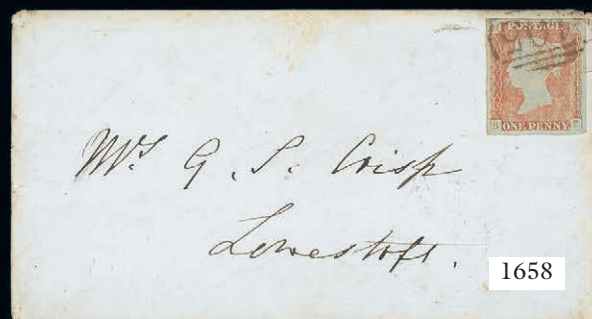 POSTAGE
ONE PENNY
Mrs. G. S. Crisp
Lowestoft.
1658